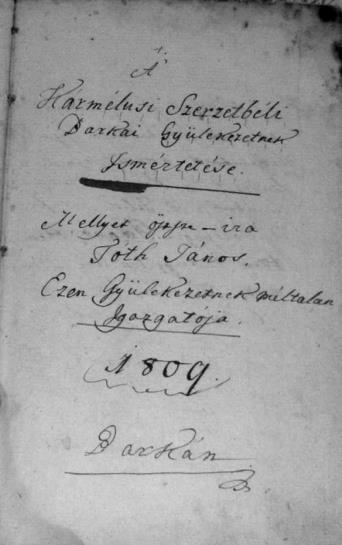 A
Kármélusi Szerzetbéli
Darkai Gyülekezetnek
Ismértetése.
Mellyet öszve-ira
Tóth János.
Ezen Gyülekezetnek méltatlan
Igazgatója.
1809.
Darkán